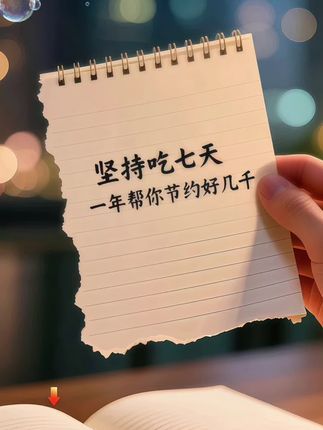 坚持吃七天
一年帮你节约好几千